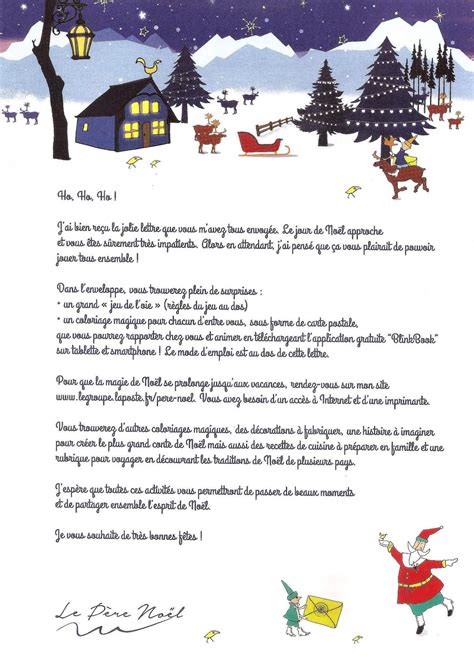 Ho, Ho, Ho !
J'ai bien reçu la jolie lettre que vous m'avez tous envoyée. Le jour de Noël approche
et vous êtes sûrement très impatients. Alors en attendant, j'ai pensé que ça vous plairait de pouvoir
jouer tous ensemble !
Dans l'enveloppe, vous trouverez plein de surprises :
• un grand « jeu de l'oie » (règles du jeu au dos)
• un coloriage magique pour chacun d'entre vous, sous forme de carte postale,
que vous pourrez rapporter chez vous et animer en téléchargeant l'application gratuite "BlinkBook"
sur tablette et smartphone ! Le mode d'emploi est au dos de cette lettre.
Pour que la magie de Noël se prolonge jusqu'aux vacances, rendez-vous sur mon site
www.legroupe.laposte.fr/pere-noel. Vous avez besoin d'un accès à Internet et d'une imprimante.
Vous trouverez d'autres coloriages magiques, des décorations à fabriquer, une histoire à imaginer
pour créer le plus grand conte de Noël mais aussi des recettes de cuisine à préparer en famille et une
rubrique pour voyager en découvrant les traditions de Noël de plusieurs pays.
J'espère que toutes ces activités vous permettront de passer de beaux moments
et de partager ensemble l'esprit de Noël.
Je vous souhaite de très bonnes fêtes !
Le Père Noël